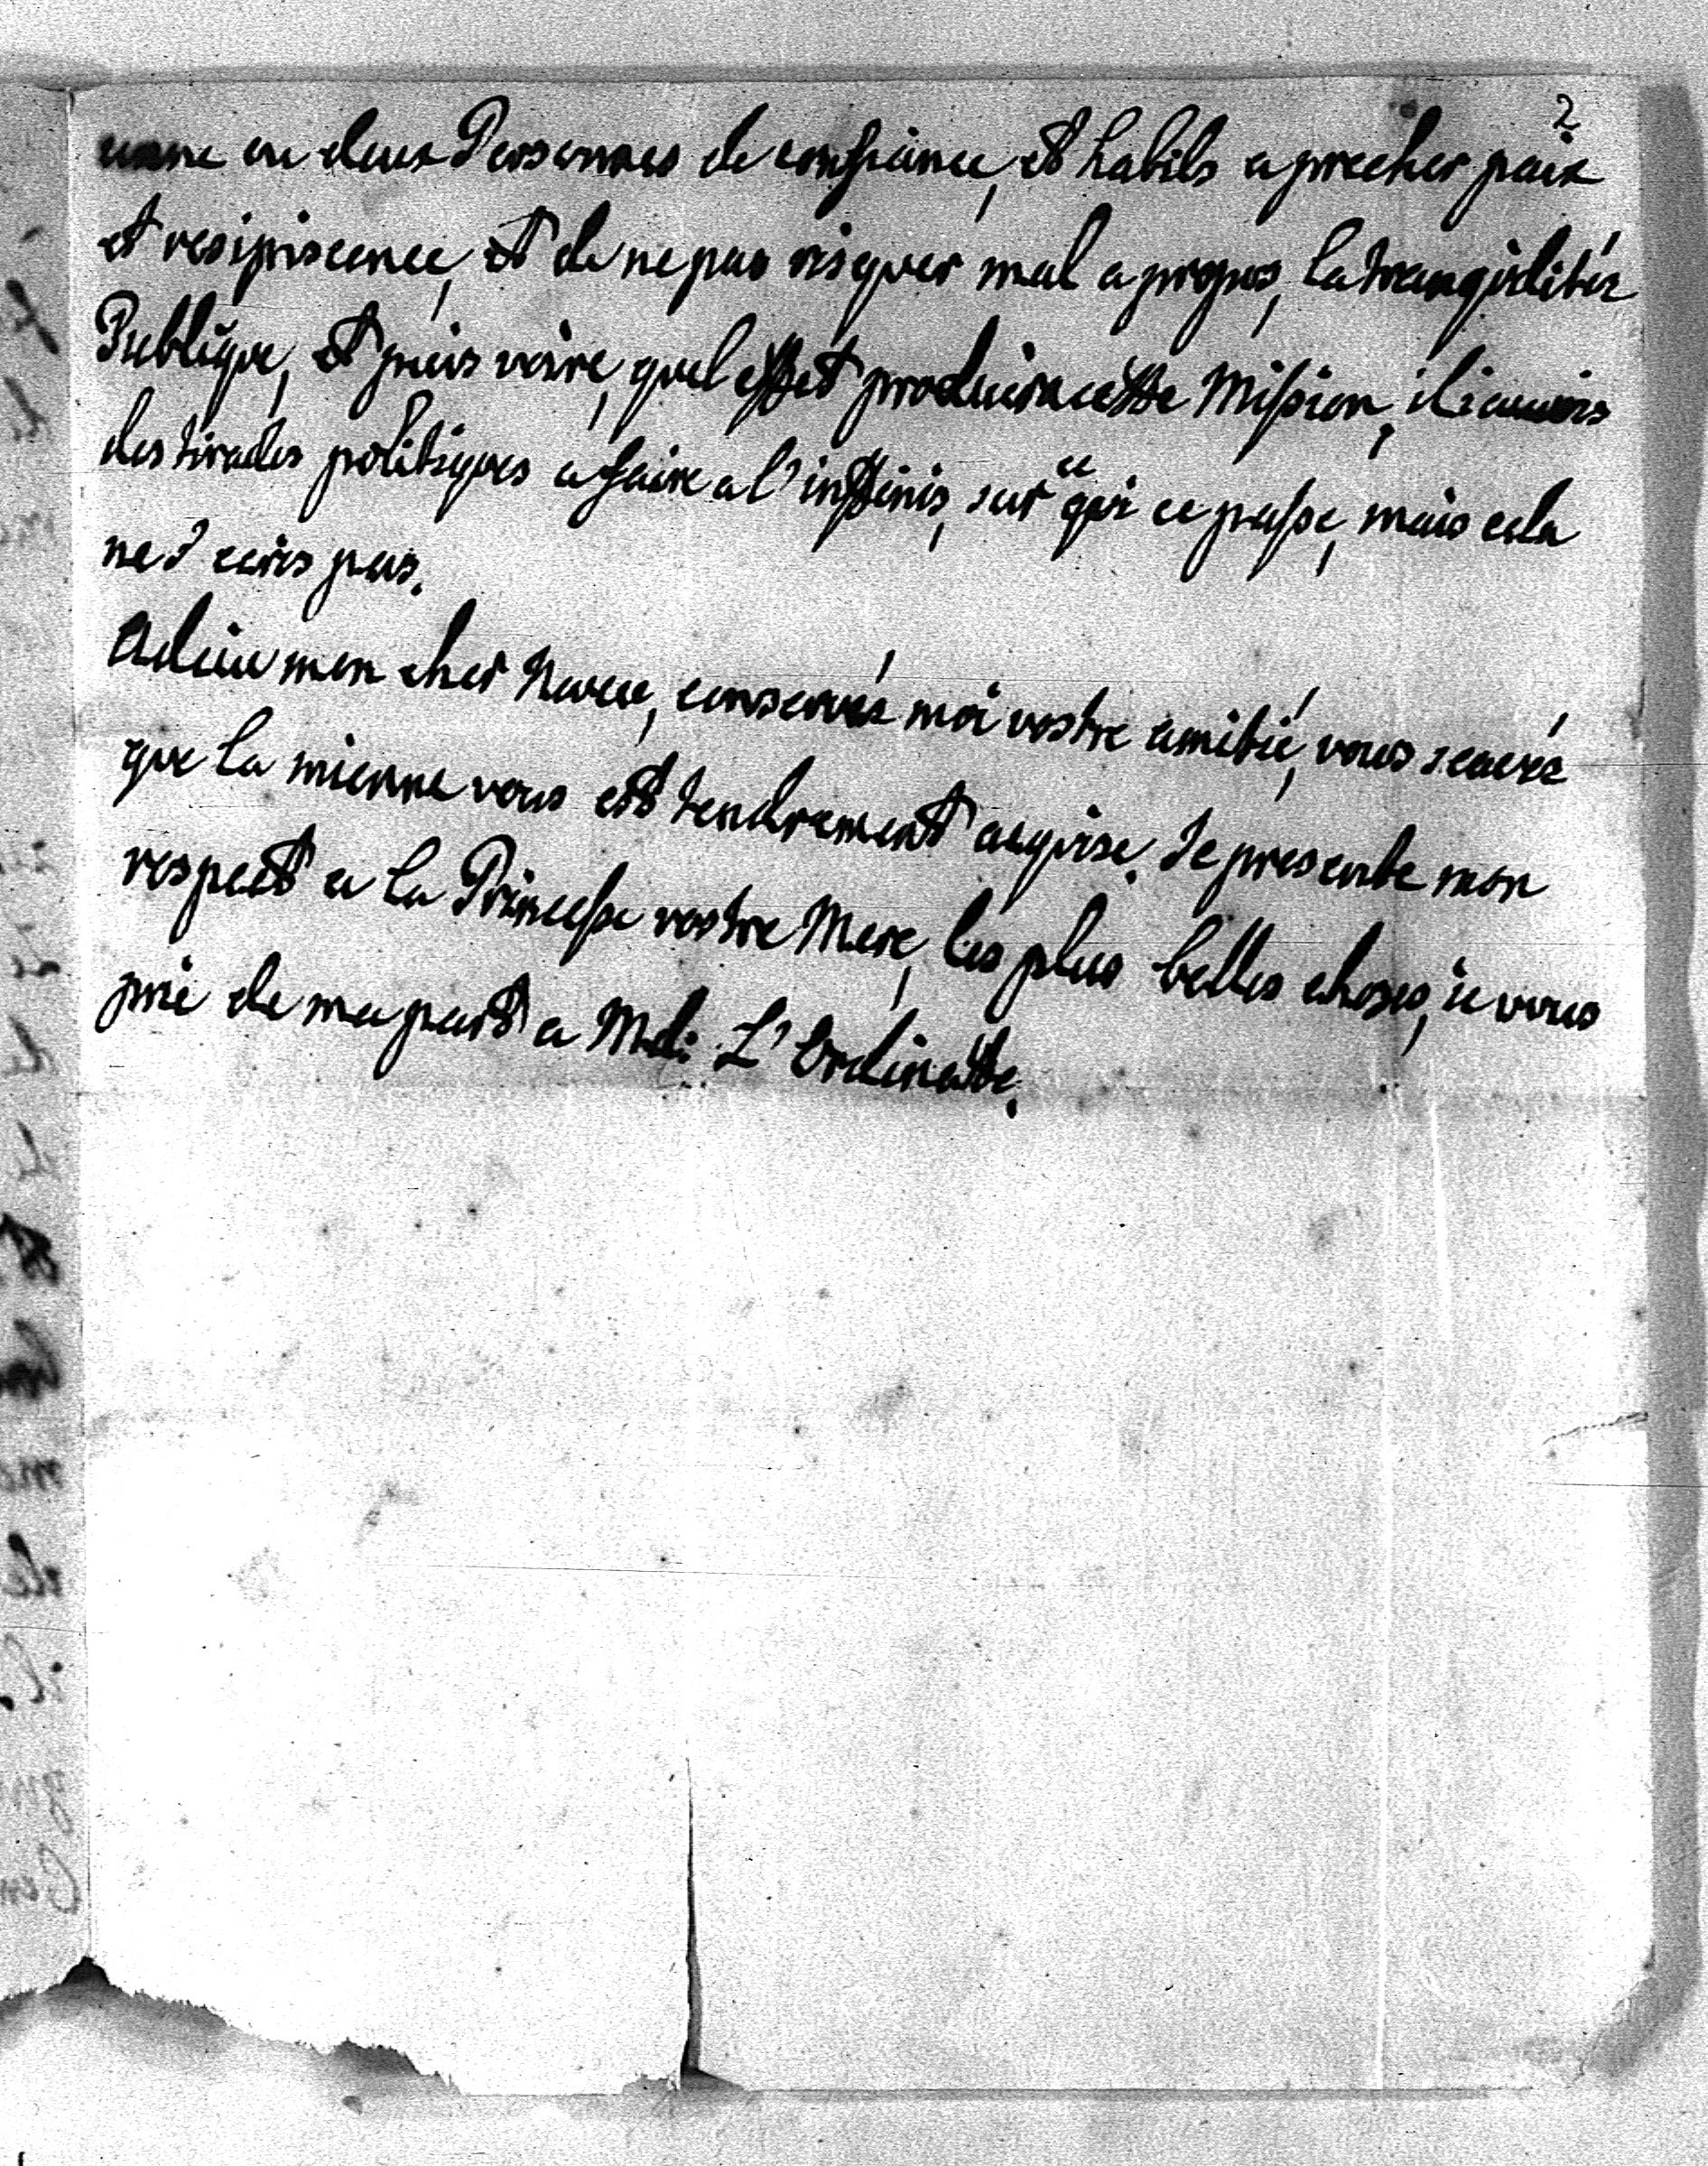 2
une ou deux Personnes de confiance, et habils a precher paix
et resipiscence, et de ne pas risquer mal a propos, la tranquilitéz
Publique, et puis voire, quel effet produira cette Mission, il i auois
des tirades politiques a faire a l'inffinis, sur ce qui ce passe, mais cela
ne s'ecris pas.
Adieu mon cher Neveu, conservéz moi vostre amitié, vous scavéz
que la mienne vous est tendrement acquise. Je presente mon
respect a la Princesse vostre Mere, les plus belles choses, je vous
prie de ma part a Md: L'Ordinette.